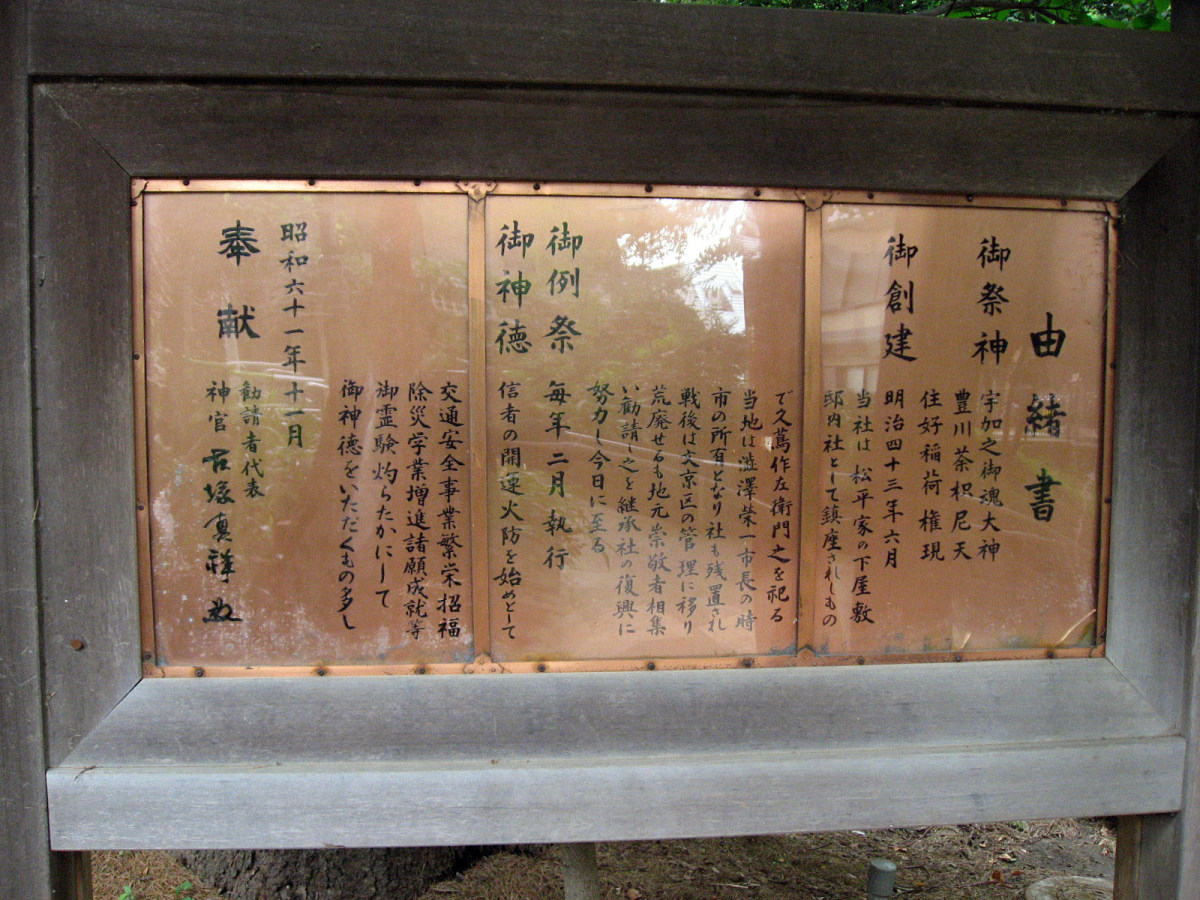 由緒書
御祭神 宇加之御魂大神
豊川荼枳尼天
住好稲荷権現
御創建 明治四十三年六月
当社は松平家の下屋敷
邸内社として鎮座されしもの
で久蔦作左衛門之を祀る
当地は澁澤栄一市長の時
市の所有となり社も残置され
戦後は文京区の管理に移り
荒廃せるも地元崇敬者相集
い勧請し之を継承社の復興に
努力し今日に至る
御例祭 毎年二月執行
御神徳 信者の開運火防を始めとして
交通安全事業繁栄招福
除災学業増進諸願成就等
御霊験灼らたかにして
御神徳をいただくもの多し
昭和六十一年十一月
奉献 勧請者代表
神官 古塚真祥